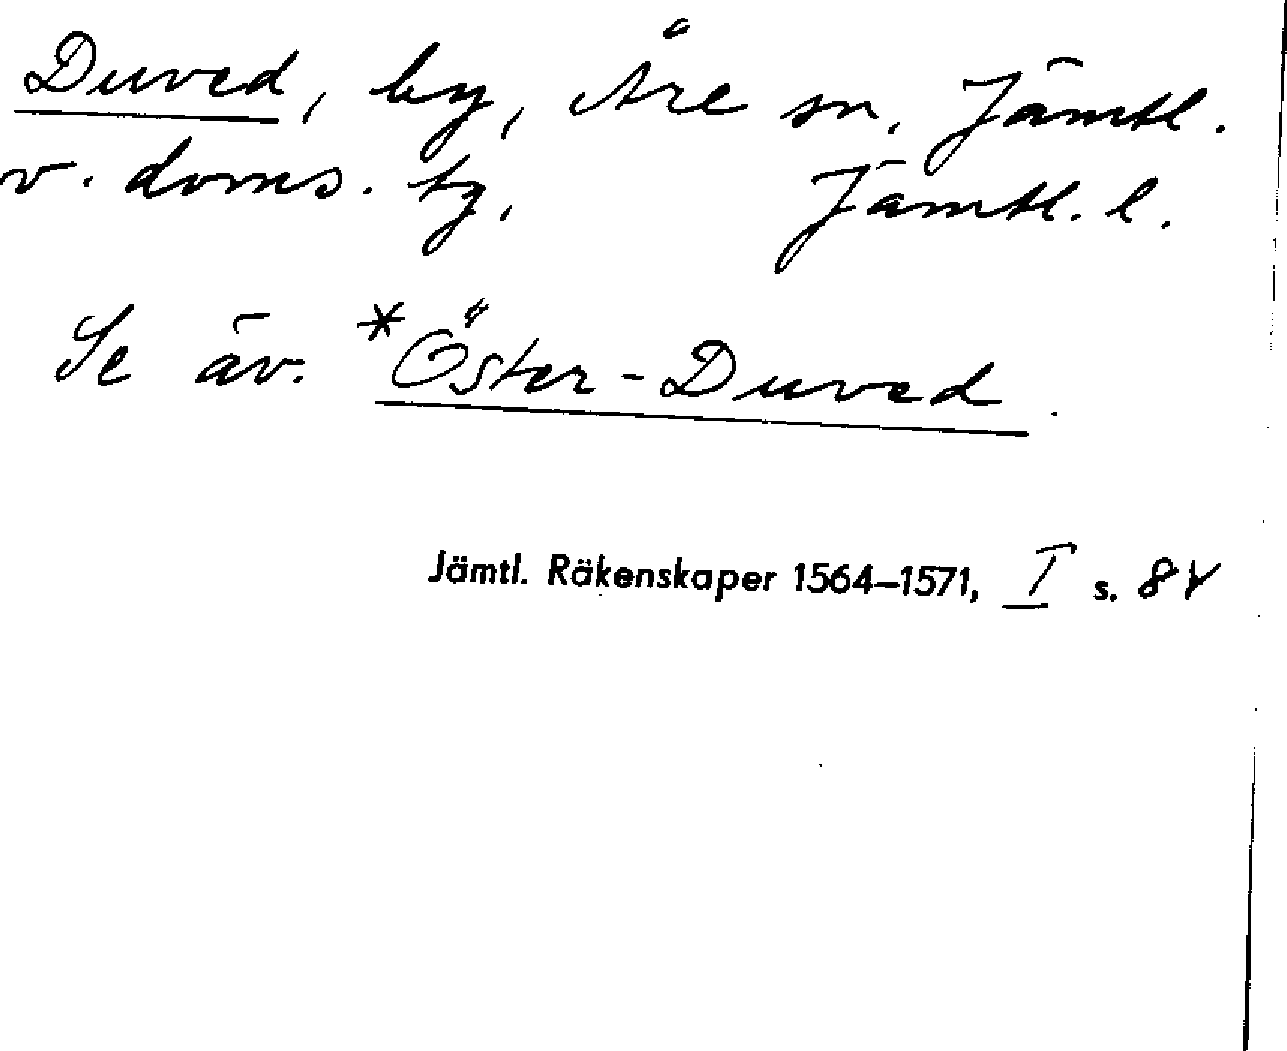 Duved, by, Åre sn, Jämtl.
v. doms. tg, Jämtl. l.
Se äv. *Öster-Duved.
Jämtl. Räkenskaper 1564–1571, I s. 84